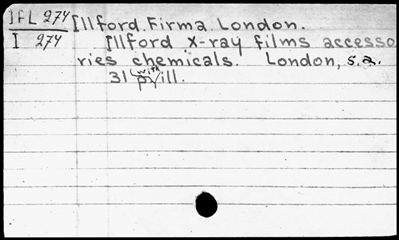 IFL 274 Illford. Firma. London.
I 274 Illford X-ray films accesso
ries chemicals. London, s.a.
31 p. with ill.